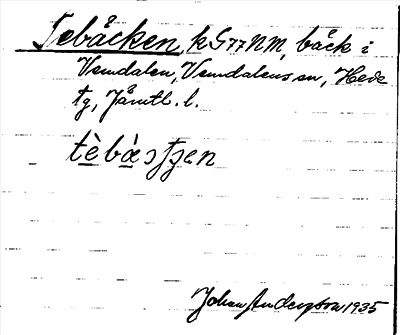 Tebäcken, k G77NM, bäck i
Vemdalen, Vemdalens sn, Hede
tg, Jämtl. l.
tèbàʃʃen
Johan Anderson 1935